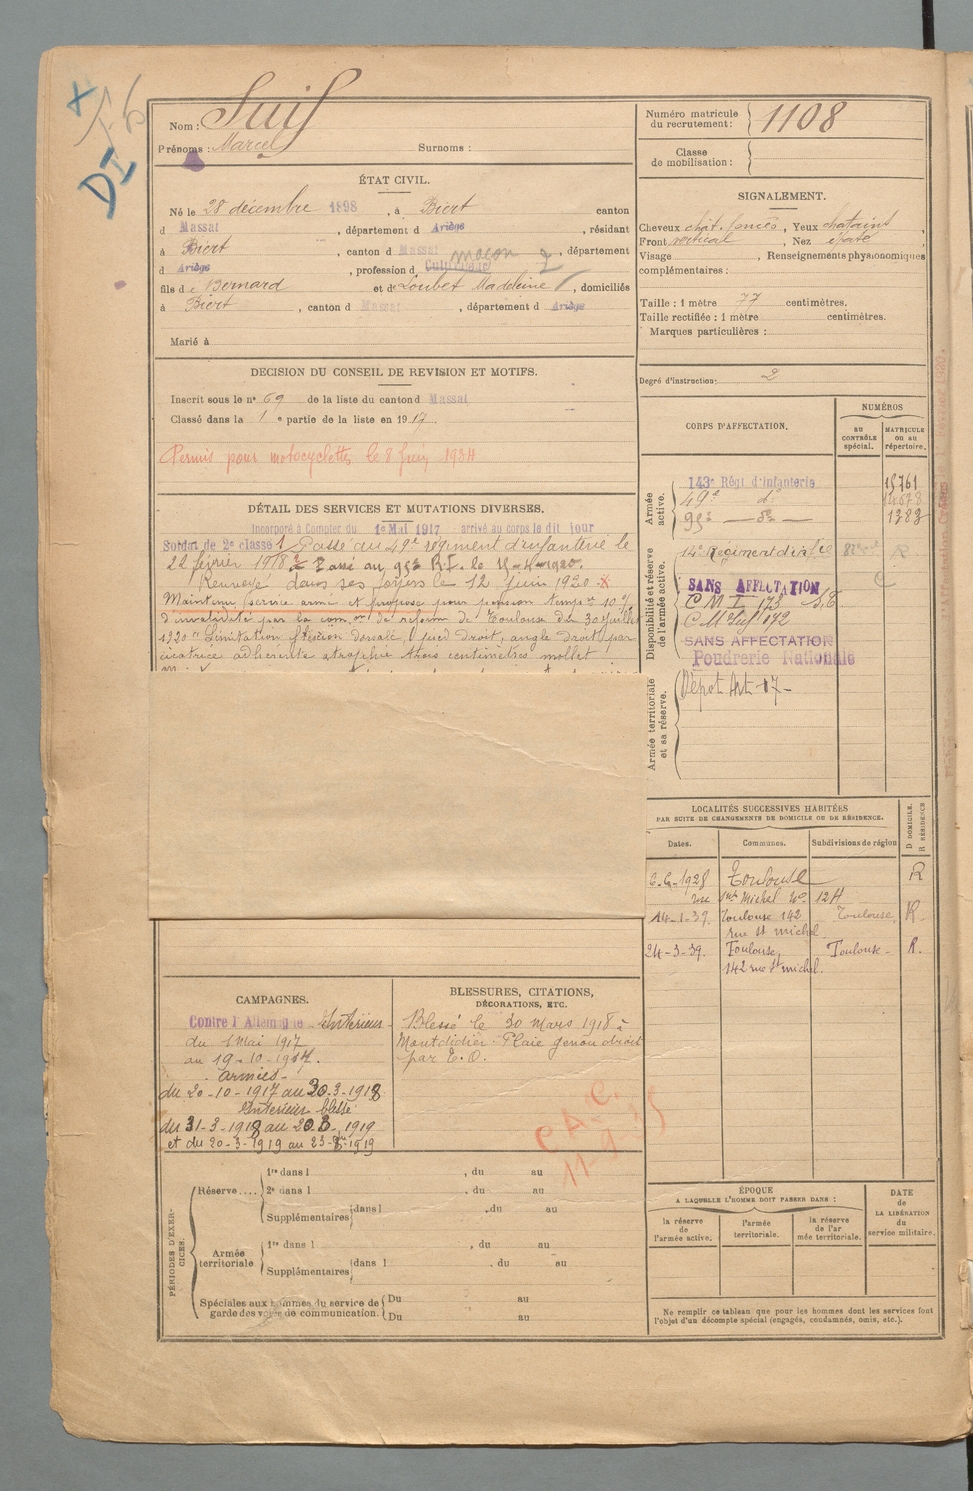 Nom : Suif
Prénoms : Marcel Surnoms :
Numéro matricule du recrutement : 1108
Classe de mobilisation :
ÉTAT CIVIL.
Né le 28 décembre 1898, à Biert canton
d Massat, département d Ariège, résidant
à Biert, canton d Massat, département
d Ariège, profession d Cultivateur maçon
fils de Bernard et de Loubet Madeleine, domiciliés
à Biert, canton d Massat, département d Ariège
Marié à
SIGNALEMENT.
Cheveux chât. foncés, Yeux chatains,
Front vertical, Nez épaté,
Visage , Renseignements physionomiques
complémentaires :
Taille : 1 mètre 77 centimètres.
Taille rectifiée : 1 mètre centimètres.
Marques particulières :
Degré d'instruction : 2
DECISION DU CONSEIL DE REVISION ET MOTIFS.
Inscrit sous le n° 69 de la liste du canton d Massat
Classé dans la 1e partie de la liste en 1917.
Permis pour motocyclettes le 8 Juin 1934
DÉTAIL DES SERVICES ET MUTATIONS DIVERSES.
Incorporé à Compter du 1e Mai 1917 arrivé au corps le dit jour
Soldat de 2e classe Passé au 49e régiment d'infanterie le
22 février 1918 Passé au 95e R.I. le
Renvoyé dans ses foyers le 12 Juin 1920
Maintenu service armé et proposé pour pension tempre 10 %
d'invalidité par la com.on de réforme de Toulouse du 30 juillet
1920 "Limitation flexion dorsale pied droit, angle droit, par
cicatrice adhérente atrophie trois centimètres mollet
CORPS D'AFFECTATION.
NUMÉROS
au CONTRÔLE spécial.
MATRICULE ou au répertoire.
Armée active.
143e Régt d'Infanterie 15761
49e d° 14678
95e d° 1383
Disponibilité et réserve de l'armée active.
14e Régiment d'infie R
SANS AFFECTATION
C M I 173
C Mob Inf 172
SANS AFFECTATION
Poudrerie Nationale
Armée territoriale et sa réserve.
Dépot Art 17
LOCALITÉS SUCCESSIVES HABITÉES
PAR SUITE DE CHANGEMENTS DE DOMICILE OU DE RÉSIDENCE.
Dates. Communes. Subdivisions de région
D DOMICILE. R RÉSIDENCE
1928 Toulouse R
rue St Michel No 124
14-1-39. Toulouse 142 Toulouse. R.
rue St michel
24-3-39. Toulouse, Toulouse - R.
142 rue St michel.
CAMPAGNES.
Contre l'Allemagne Intérieur
du 1 Mai 1917
au 19-10-1917.
Armées
du 20-10-1917 au 30-3-1918
Intérieur blessé
du 31-3-1918 au
et du 20-3-1919 au
BLESSURES, CITATIONS,
DÉCORATIONS, ETC.
Blessé le 30 Mars 1918 à
Montdidier Plaie genou droit
par E. O.
C.A.C.
PÉRIODES D'EXERCICES.
Réserve.... 1re dans l , du au
2e dans l , du au
Supplémentaires dans l , du au
Armée territoriale 1re dans l , du au
Supplémentaires dans l , du au
Spéciales aux hommes du service de garde des voies de communication. Du au
Du au
ÉPOQUE
A LAQUELLE L'HOMME DOIT PASSER DANS :
la réserve de l'armée active.
l'armée territoriale.
la réserve de l'armée territoriale.
DATE de LA LIBÉRATION du service militaire.
Ne remplir ce tableau que pour les hommes dont les services font
l'objet d'un décompte spécial (engagés, condamnés, omis, etc.).